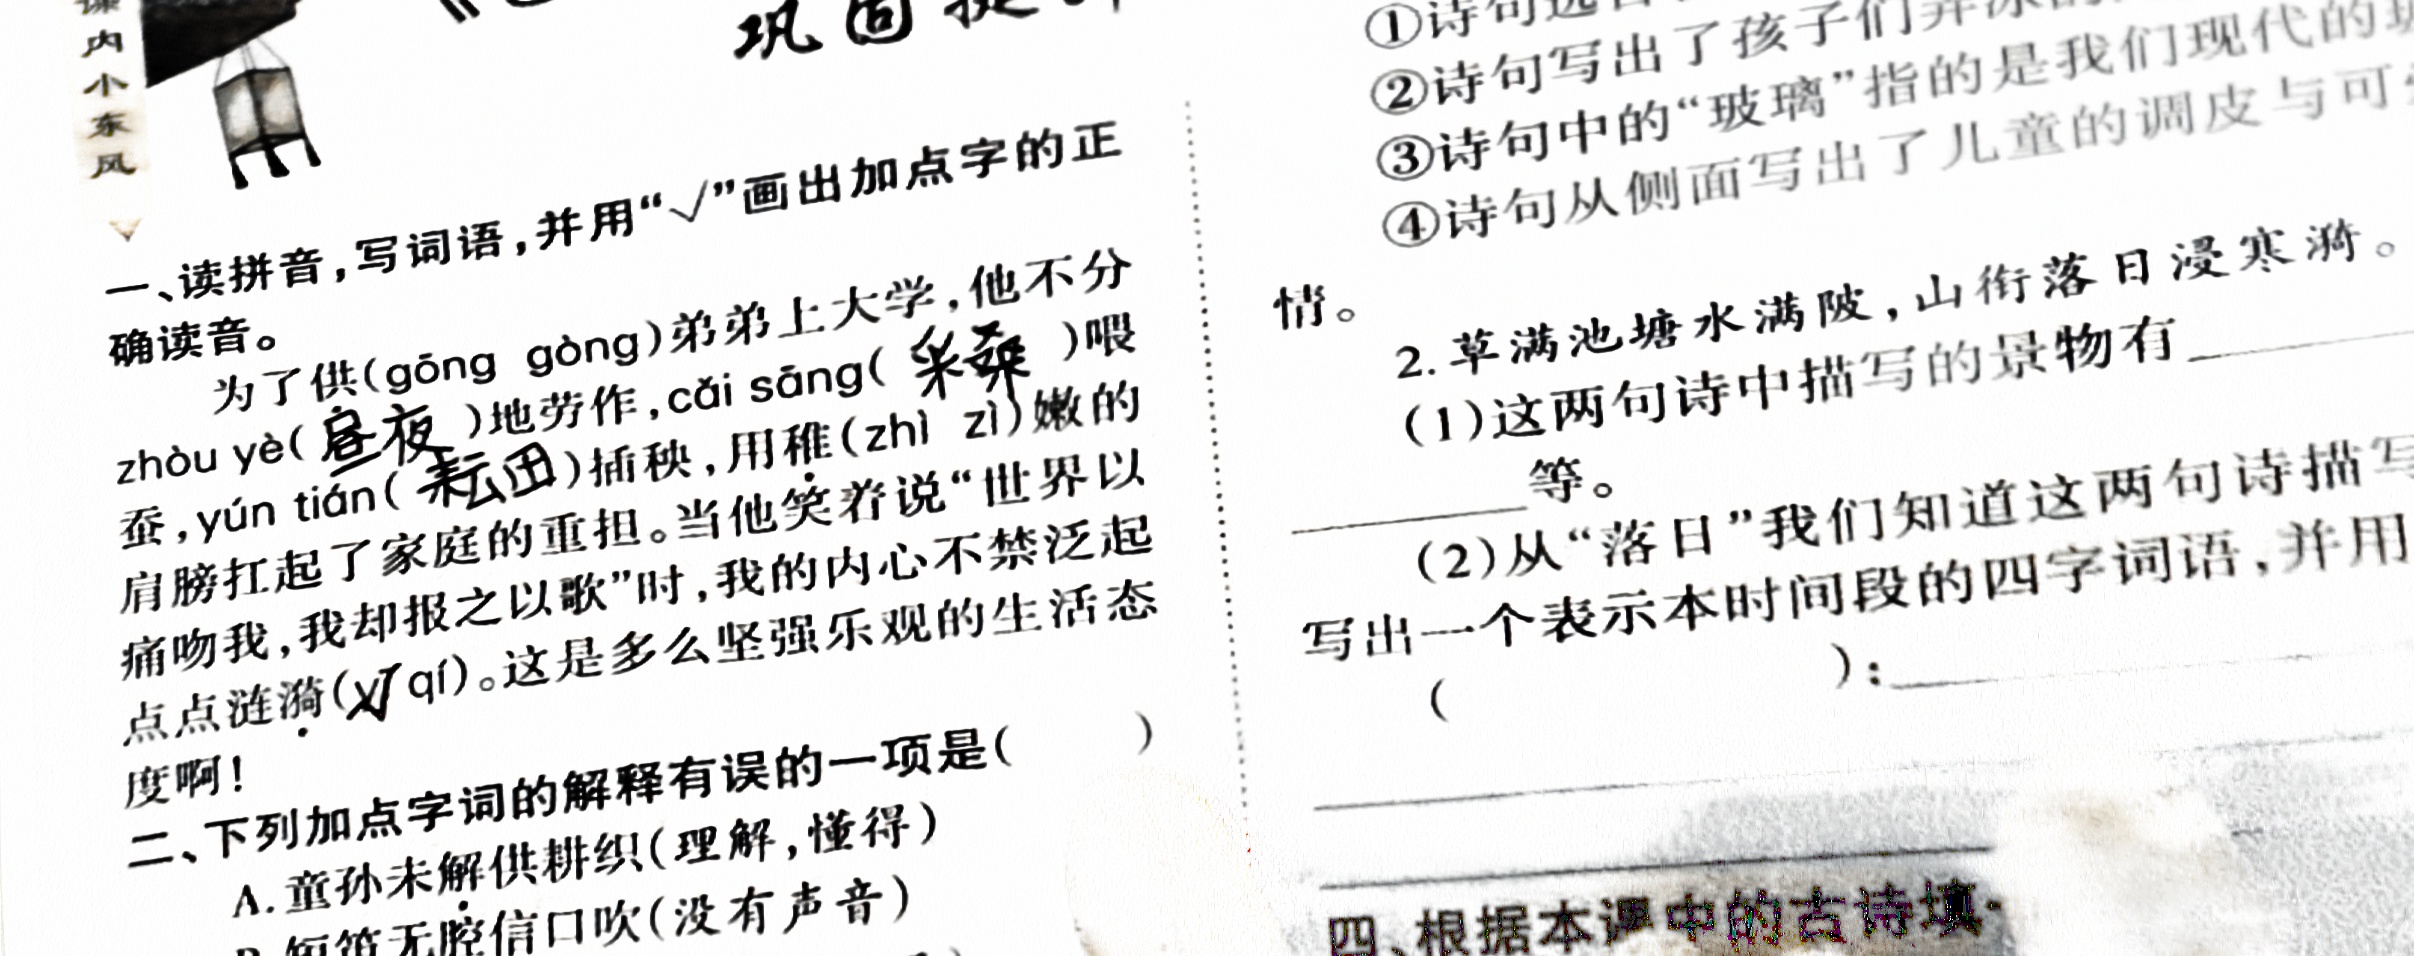 课
内
小
东
风
巩固提
一、读拼音,写词语,并用“√”画出加点字的正
确读音。
为了供(gōng gòng)弟弟上大学,他不分
zhòu yè(昼夜)地劳作,cǎi sāng(采桑)喂
蚕,yún tián(耘田)插秧,用稚(zhì zì)嫩的
肩膀扛起了家庭的重担。当他笑着说“世界以
痛吻我,我却报之以歌”时,我的内心不禁泛起
点点涟漪(yī qí)。这是多么坚强乐观的生活态
度啊!
二、下列加点字词的解释有误的一项是( )
A.童孙未解供耕织(理解,懂得)
B.短笛无腔信口吹(没有声音)
①诗句
②诗句写出了孩子们弄冰的
③诗句中的“玻璃”指的是我们现代的玻
④诗句从侧面写出了儿童的调皮与可
情。
2.草满池塘水满陂,山衔落日浸寒漪。
(1)这两句诗中描写的景物有
等。
(2)从“落日”我们知道这两句诗描写
写出一个表示本时间段的四字词语,并用
( ):
四、根据本课中的古诗填